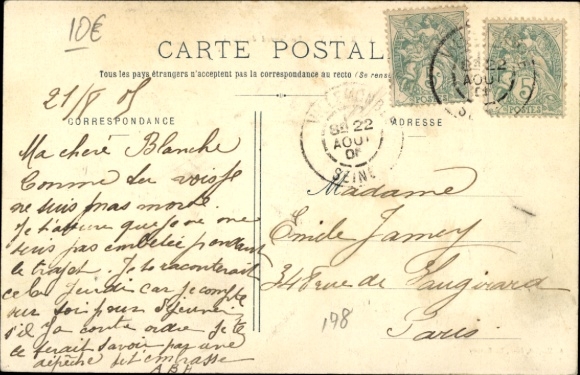 10€
CARTE POSTALE
Tous les pays étrangers n'acceptent pas la correspondance au recto (Se rense
21/8 05
CORRESPONDANCE
ADRESSE
Ma cheré Blanche
Comme tu vois je
ne suis pas morte.
Je t'assure que je ne me
suis pas embetée pendant
le trajet. Je te raconterai
cela Jeudi car je compte
sur soi pour
s'il y a contre ordre je te
le ferait savoir par une
dépêche t'embrasse
SEINE
22
AOUT
05
22
AOUT
5
POSTES
POSTES
Madame
Emile Jamey
348 rue de Vaugirard
Paris
198